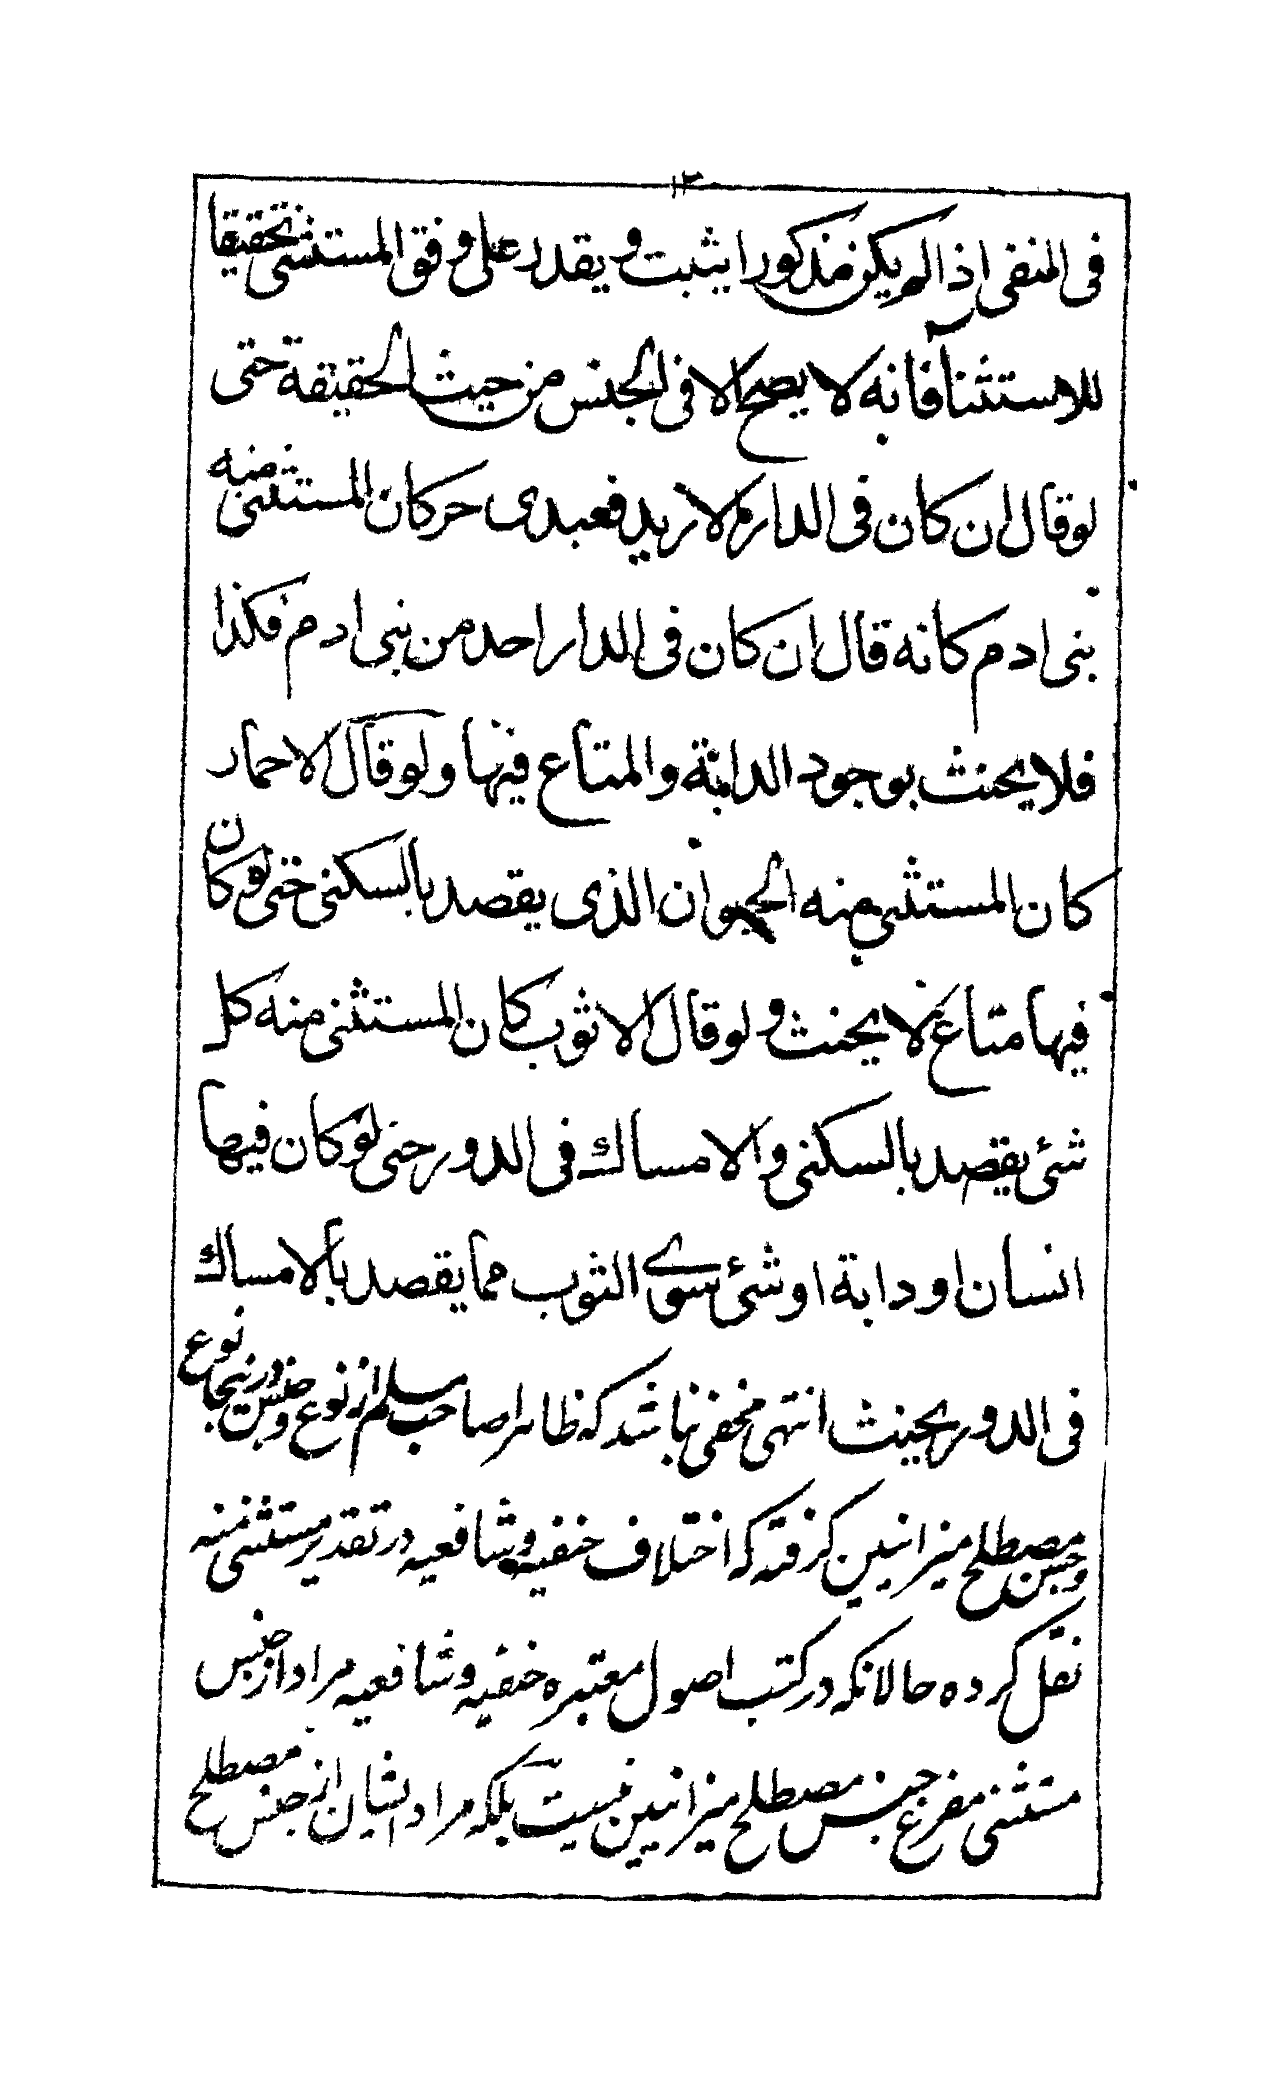 ١٢
فى المنفى اذا لم يكن مذكورا يثبت و يقدر على وفق المستثنى تحقيقا
للاستثنآ فانه لا يصح الا فى الجنس من حيث الحقيقة حتى
لو قال ان كان فى الدار الا زيد فعبدى حر كان المستثنى منه
بنى ادم كانه قال ان كان فى الدار احد من بنى ادم فكذا
فلا يحنث بوجود الدابة والمتاع فيها ولو قال الا حمار
كان المستثنى منه الحيوان الذى يقصد بالسكنى حتى لو كان
فيها متاع لا يحنث ولو قال الا ثوب كان المستثنى منه كل
شئ يقصد بالسكنى والامساك فى الدور حتى لو كان فيها
انسان او دابة او شئ سوى الثوب مما يقصد بالامساك
فى الدور يحنث انتهى مخفى نباشد كه ظاهرا صاحب مسلم از نوع و جنس درينجا نوع
و جنس مصطلح ميزانيين گرفته كه اختلاف حنفيه و شافعيه در تقدير مستثنى منه
نقل كرده حالانكه در كتب اصول معتبره حنفيه و شافعيه مراد از جنس
مستثنى مفرغ جنس مصطلح ميزانيين نيست بلكه مراد ايشان از جنس مصطلح